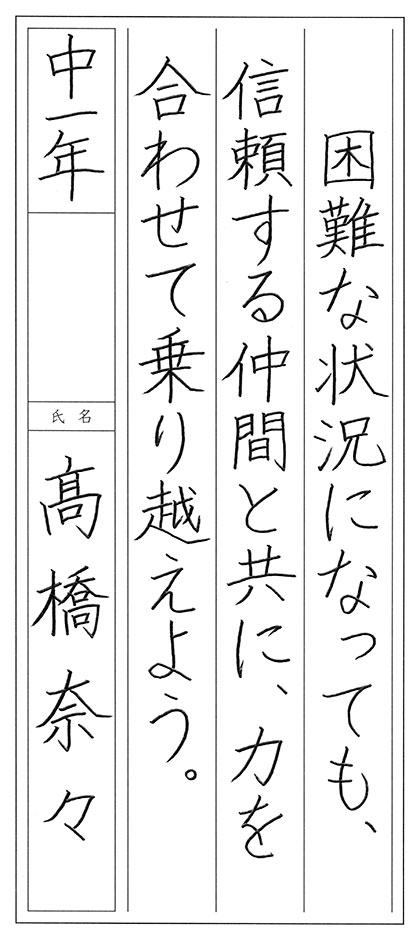 困難な状況になっても、
信頼する仲間と共に、力を
合わせて乗り越えよう。
中一年
氏名
髙橋奈々